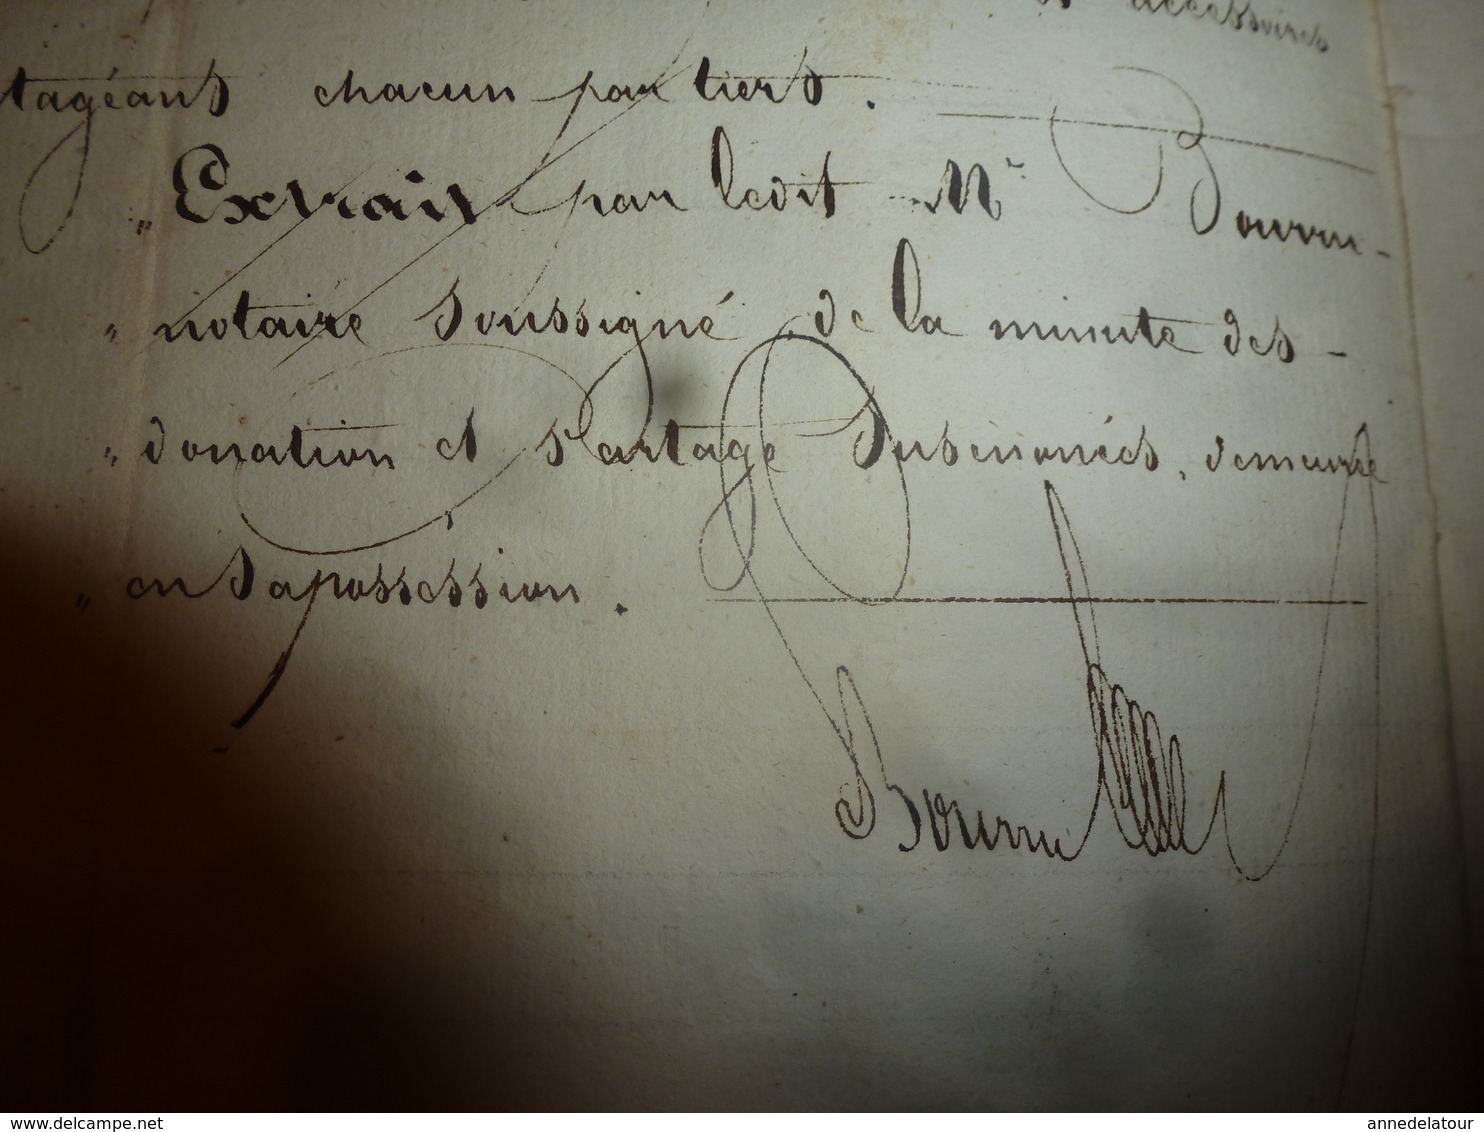 accessoires
tageans chacun par tiers.
" Extrait par ledit Mr Bourru
" notaire soussigné, de la minute des
" donation et partage susénoncés, demeurée
" en sa possession.
Bourru
annedelatour